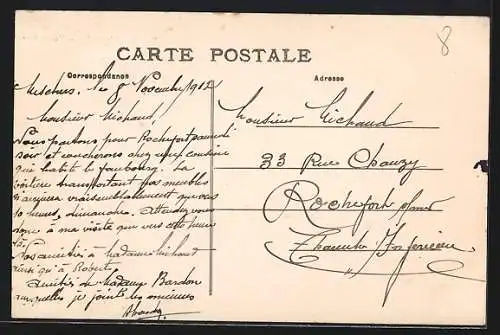 8
CARTE POSTALE
Correspondance
Adresse
le 8 Novembre 1912
Monsieur Michaud,
Nous partons pour Rochefort samedi
soir et coucherons chez une cousine
qui habite le faubourg. La
voiture transportant les meubles
n'arrivera vraisemblablement que vers
10 heures, dimanche. Attendez-vous
donc à ma visite que vers cette heure
là.
Nos amitiés à Madame Michaud
ainsi qu'à Robert.
Amitiés de Madame Bardon
auxquelles je joins les miennes
Monsieur Michaud
33 Rue Chanzy
Rochefort s/mer
Charente Inférieure